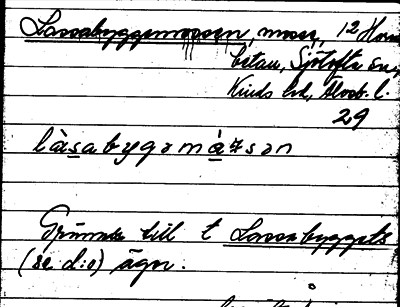 Lassabyggemossen, mosse, 12 Horna
betan, Sjötofta sn,
Kinds hd, Älvsb. l.
29
làsabygəmåsən
Gränsar till t Lassabyggets
(se d:o) ägor.